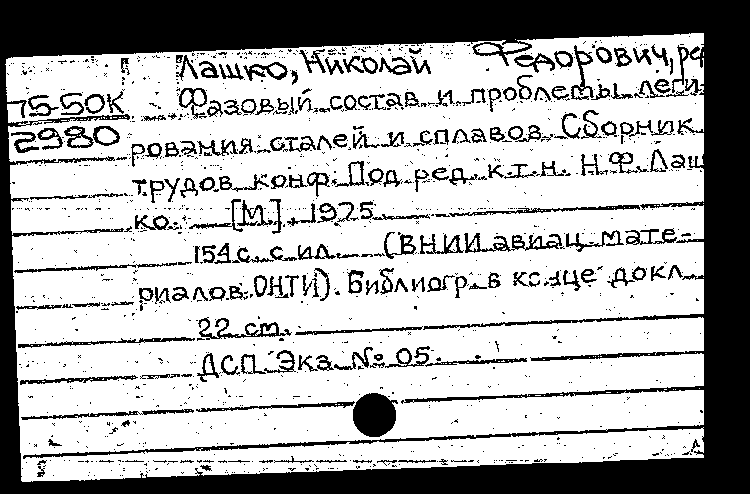 Лашко, Николай Федорович, ре
75-50к Фазовый состав и проблемы леги-
2980 рования сталей и сплавов. Сборник
трудов конф. Под ред. к.т.н. Н.Ф. Лаш
ко. [М.], 1975.
154 с. с ил. (ВНИИ авиац. мате-
риалов. ОНТИ). Библиогр. в конце докл.
22 см.
ДСП. Экз. № 05.